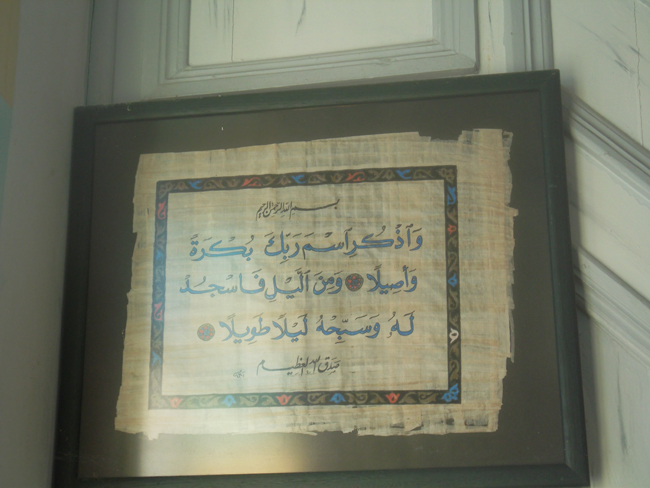 بسم الله الرحمن الرحيم
وَٱذْكُرِ ٱسْمَ رَبِّكَ بُكْرَةً
وَأَصِيلًا وَمِنَ ٱلَّيْلِ فَٱسْجُدْ
لَهُ وَسَبِّحْهُ لَيْلًا طَوِيلًا
صدق الله العظيم